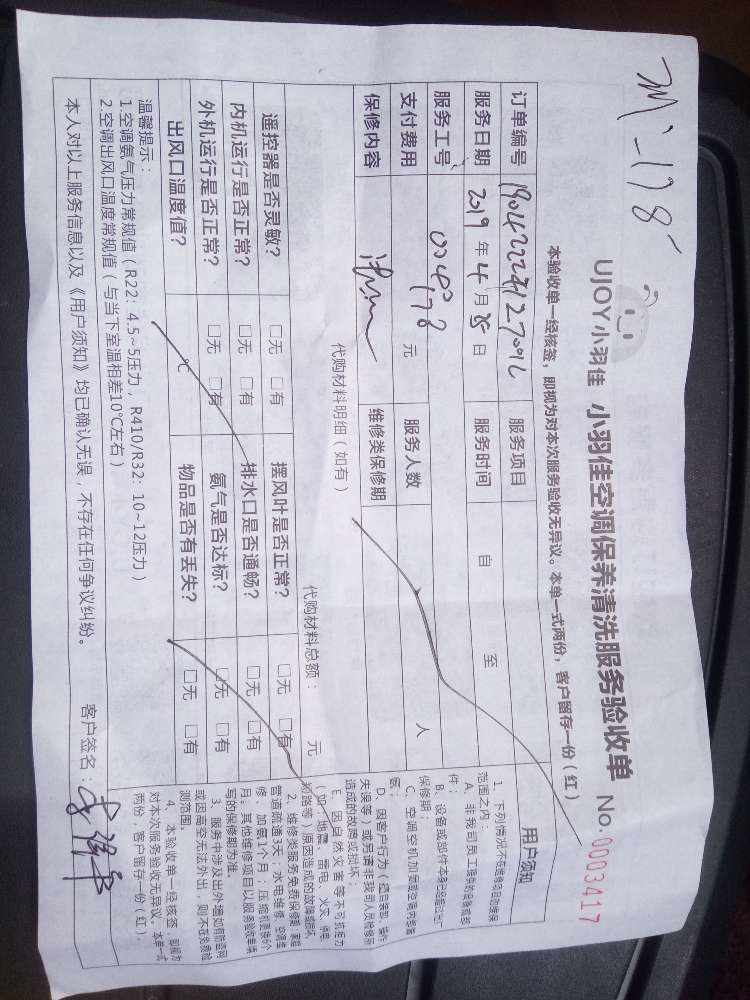 UJOY小羽佳 小羽佳空调保养清洗服务验收单 No.0003417
本验收单一经核签，即视为对本次服务验收无异议。本单一式两份，客户留存一份（红）
订单编号 服务项目
服务日期 2019 年 4 月 25 日 服务时间 自 至
服务工号 0048
支付费用 178 元 服务人数 人
保修内容 维修类保修期
代购材料明细（如有）
代购材料总额： 元
遥控器是否灵敏？ □无 □有 摆风叶是否正常？ □无 □有
内机运行是否正常？ □无 □有 排水口是否通畅？ □无 □有
外机运行是否正常？ □无 □有 氨气是否达标？ □无 □有
出风口温度值？ ℃ 物品是否有丢失？ □无 □有
温馨提示：
1.空调氨气压力常规值（R22：4.5~5压力，R410/R32：10~12压力）
2.空调出风口温度常规值（与当下室温相差10℃左右）
本人对以上服务信息以及《用户须知》均已确认无误，不存在任何争议纠纷。 客户签名：
用户须知
1、下列情况不在
范围之内：
A、非我司员工
件；
B、设备或部件本身已经超过
保修期；
C、空调空机加
氨；
D、因客户行为（
失误等）或另请非我司人员维修所
造成的故障或损坏；
E、因自然灾害等不可抗力
（如：地震、雷电、火灾、
等）原因造成的故障或损坏。
2、维修类服务免费保修期：家庭
管道疏通3天；水电维修、空调维
修、加氨1个月；
月。其他维修项目以服务验收单填
写的保修期为准。
3、服务中涉及出外墙如有防盗网
或因高空无法外出，则不在免费检
测范围。
4、本验收单一经核签，即视为
对本次服务验收无异议。本单一式
两份，客户留存一份（红）。